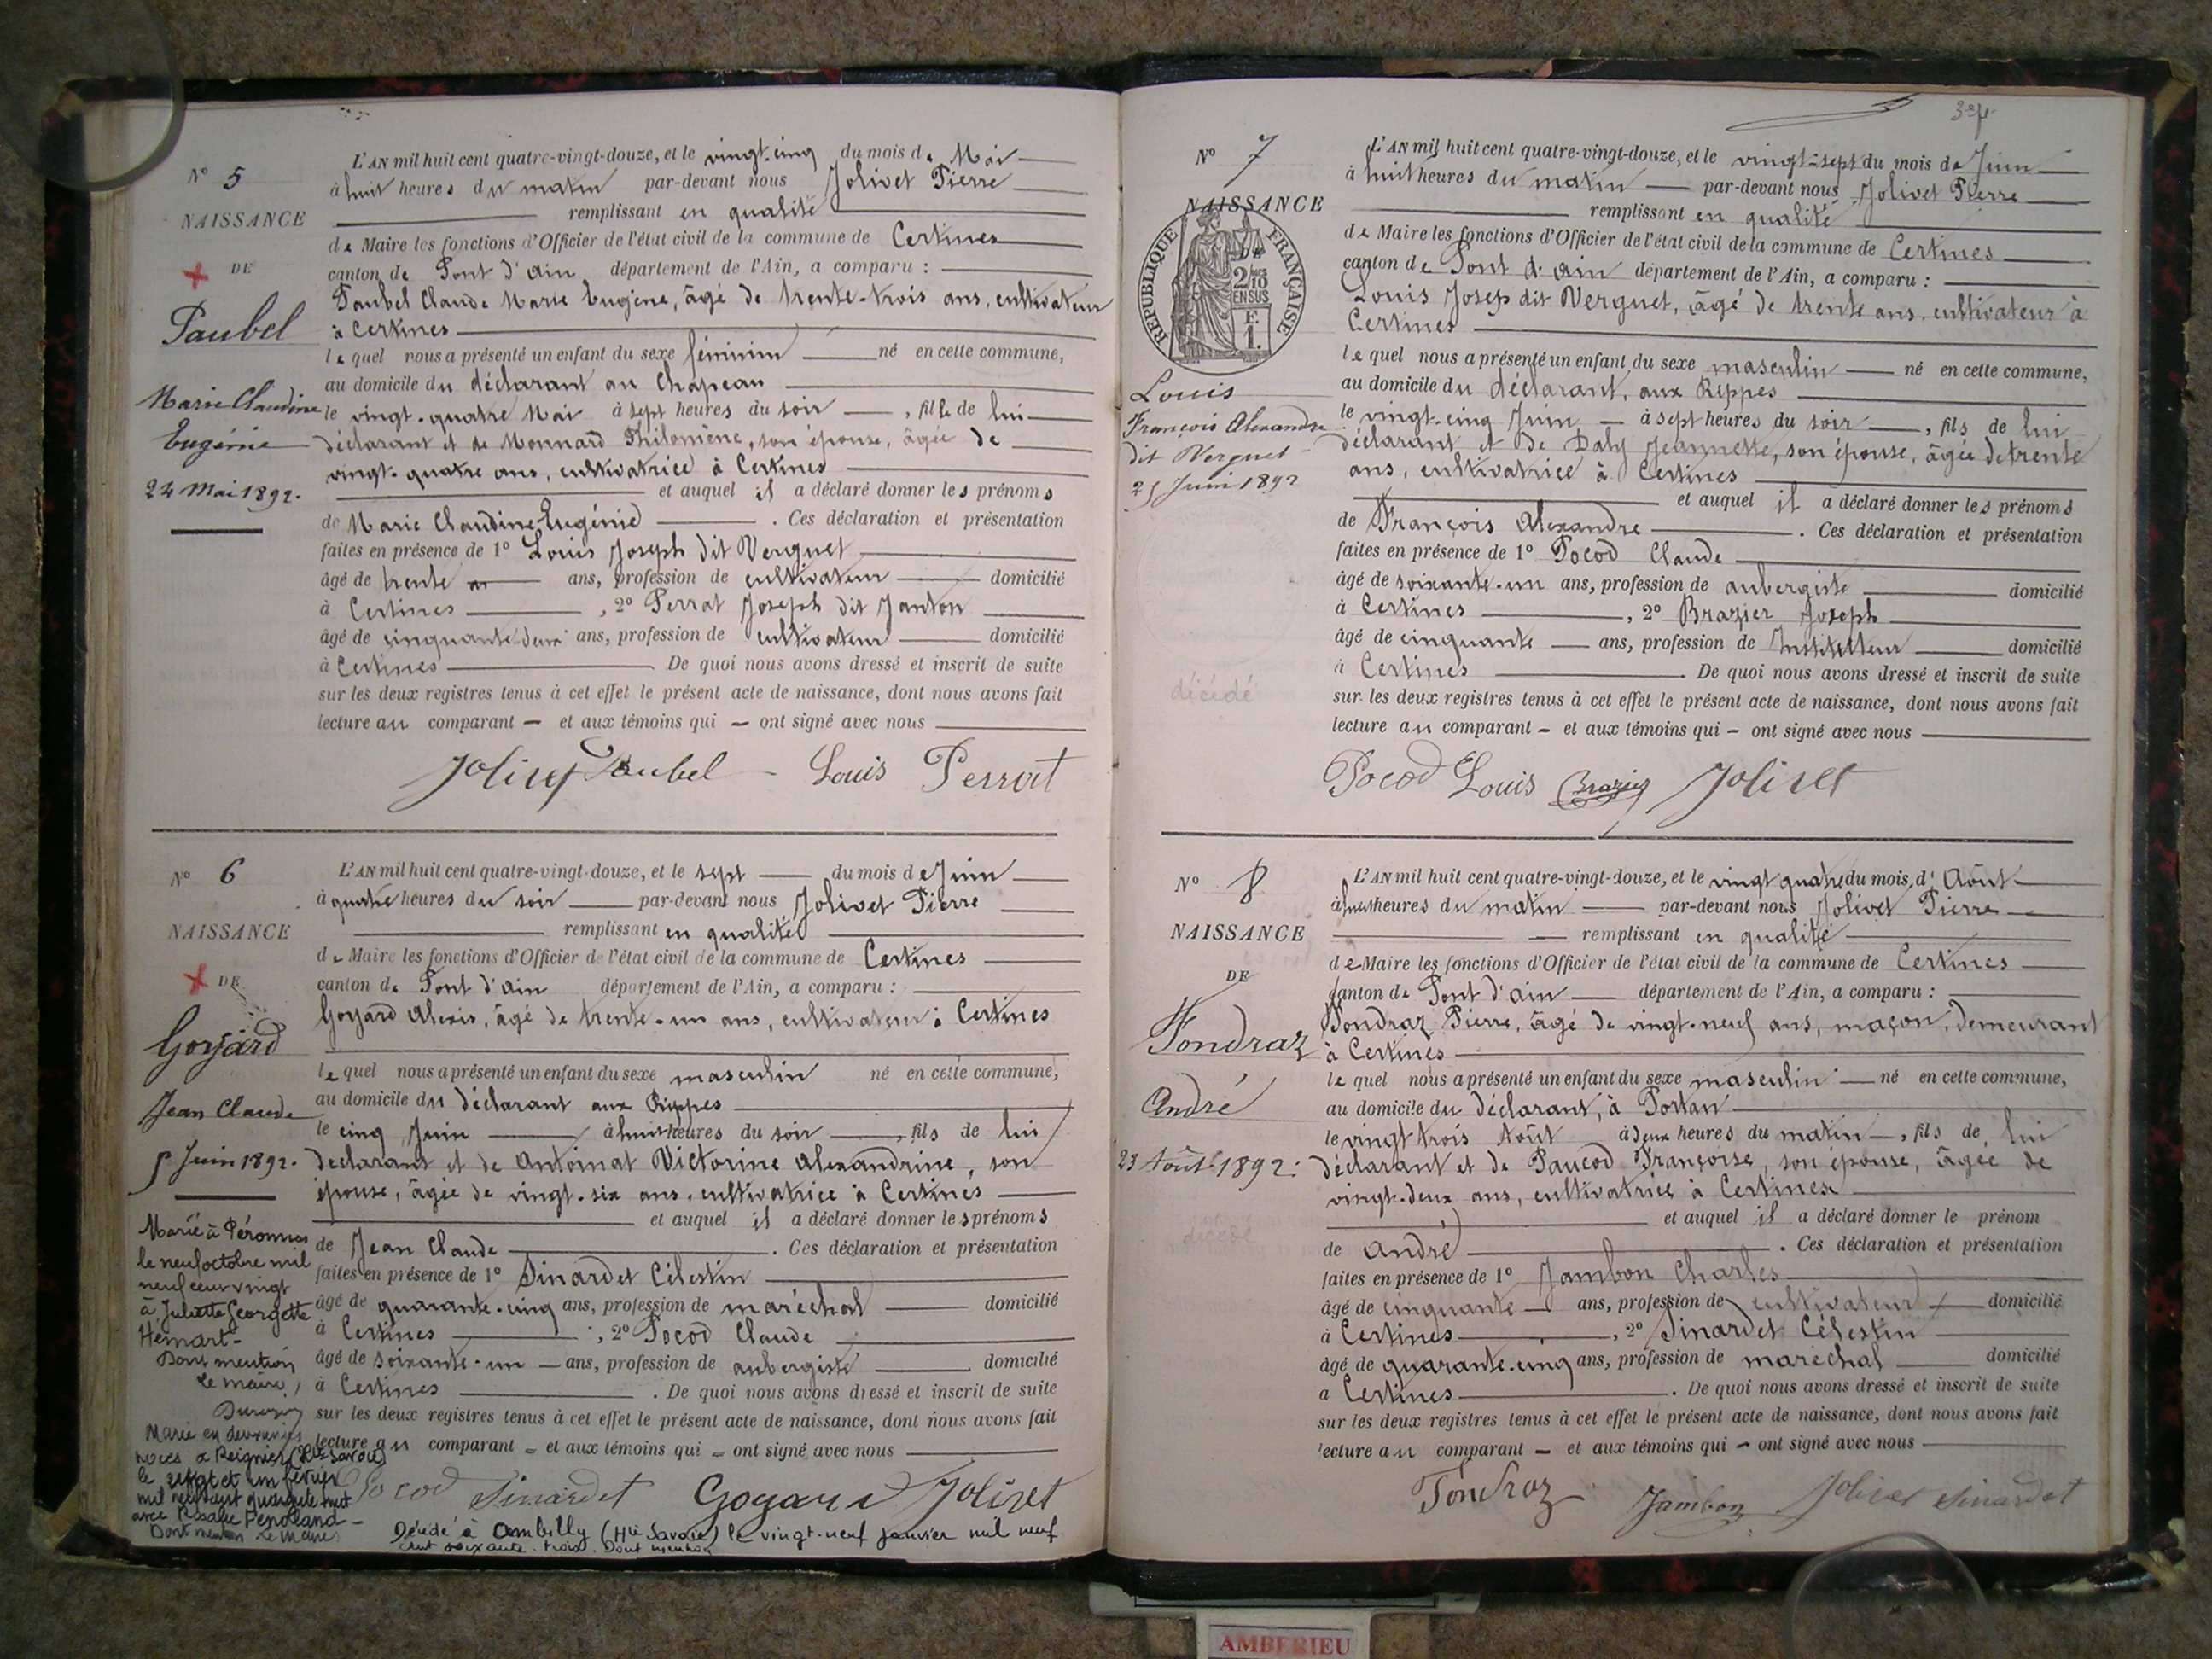 N° 5
NAISSANCE
DE
Paubel
Marie Claudine
Eugénie
24 Mai 1892.
L'AN mil huit cent quatre-vingt-douze, et le vingt-cinq du mois de Mai
à huit heures du matin par-devant nous Jolivet Pierre
remplissant en qualité
de Maire les fonctions d'Officier de l'état civil de la commune de Certines
canton de Pont d'ain département de l'Ain, a comparu :
Paubel Claude Marie Eugène, âgé de trente-trois ans, cultivateur
à Certines
lequel nous a présenté un enfant du sexe féminin né en cette commune,
au domicile du déclarant au Chapeau
le vingt-quatre Mai à sept heures du soir, fille de lui
déclarant et de Monnard Philomène, son épouse, âgée de
vingt-quatre ans, cultivatrice à Certines
et auquel il a déclaré donner les prénoms
de Marie Claudine Eugénie. Ces déclaration et présentation
faites en présence de 1° Louis Joseph dit Verguet
âgé de trente ans, profession de cultivateur domicilié
à Certines, 2° Perrat Joseph dit Janton
âgé de cinquante-deux ans, profession de cultivateur domicilié
à Certines De quoi nous avons dressé et inscrit de suite
sur les deux registres tenus à cet effet le présent acte de naissance, dont nous avons fait
lecture au comparant — et aux témoins qui — ont signé avec nous
Jolivet Paubel Louis Perrat
N° 6
NAISSANCE
DE
Goyard
Jean Claude
5 Juin 1892.
Marié à Péronnas
le neuf octobre mil
neuf cent vingt
à Juliette Georgette
Hémart-
Dont mention
Le maire,
Marié en deuxièmes
noces à Reignier (Hte Savoie)
le vingt et un février
mil neuf cent quarante huit
avec
Dont mention Le Maire
L'AN mil huit cent quatre-vingt-douze, et le sept du mois de Juin
à quatre heures du soir par-devant nous Jolivet Pierre
remplissant en qualité
de Maire les fonctions d'Officier de l'état civil de la commune de Certines
canton de Pont d'ain département de l'Ain, a comparu :
Goyard Alexis, âgé de trente-un ans, cultivateur à Certines
lequel nous a présenté un enfant du sexe masculin né en cette commune,
au domicile du déclarant aux Rippes
le cinq Juin à huit heures du soir, fils de lui
déclarant et de Antoinat Victorine Alexandrine, son
épouse, âgée de vingt-six ans, cultivatrice à Certines
et auquel il a déclaré donner les prénoms
de Jean Claude. Ces déclaration et présentation
faites en présence de 1° Sinardet Célestin
âgé de quarante-cinq ans, profession de maréchal domicilié
à Certines, 2° Pocod Claude
âgé de soixante-un ans, profession de aubergiste domicilié
à Certines. De quoi nous avons dressé et inscrit de suite
sur les deux registres tenus à cet effet le présent acte de naissance, dont nous avons fait
lecture au comparant — et aux témoins qui — ont signé avec nous
Pocod Sinardet Goyard Jolivet
Décédé à Ambilly (Hte Savoie) le vingt-neuf janvier mil neuf
cent soixante-trois. Dont mention
N° 7
NAISSANCE
RÉPUBLIQUE FRANÇAISE
2/10
EN SUS
F.
1.
Louis
François Alexandre
dit Verguet
25 Juin 1892
décédé
L'AN mil huit cent quatre-vingt-douze, et le vingt-sept du mois de Juin
à huit heures du matin par-devant nous Jolivet Pierre
remplissant en qualité
de Maire les fonctions d'Officier de l'état civil de la commune de Certines
canton de Pont d'ain département de l'Ain, a comparu :
Louis Joseph dit Verguet, âgé de trente ans, cultivateur à
Certines
lequel nous a présenté un enfant du sexe masculin né en cette commune,
au domicile du déclarant, aux Rippes
le vingt-cinq Juin à sept heures du soir, fils de lui
déclarant et de Paty Jeannette, son épouse, âgée de trente
ans, cultivatrice à Certines
et auquel il a déclaré donner les prénoms
de François Alexandre. Ces déclaration et présentation
faites en présence de 1° Pocod Claude
âgé de soixante-un ans, profession de aubergiste domicilié
à Certines, 2° Brazier Joseph
âgé de cinquante ans, profession de Instituteur domicilié
à Certines. De quoi nous avons dressé et inscrit de suite
sur les deux registres tenus à cet effet le présent acte de naissance, dont nous avons fait
lecture au comparant — et aux témoins qui — ont signé avec nous
Pocod Louis Brazier Jolivet
N° 8
NAISSANCE
DE
Fondraz
André
23 Août 1892.
décédé
L'AN mil huit cent quatre-vingt-douze, et le vingt quatre du mois d'Août
à huit heures du matin par-devant nous Jolivet Pierre
remplissant en qualité
de Maire les fonctions d'Officier de l'état civil de la commune de Certines
canton de Pont d'ain département de l'Ain, a comparu :
Fondraz Pierre, âgé de vingt-neuf ans, maçon, demeurant
à Certines
lequel nous a présenté un enfant du sexe masculin né en cette commune,
au domicile du déclarant, à Portan
le vingt trois Août à deux heures du matin, fils de lui
déclarant et de Paucod Françoise, son épouse, âgée de
vingt-deux ans, cultivatrice à Certines
et auquel il a déclaré donner le prénom
de André. Ces déclaration et présentation
faites en présence de 1° Jambon Charles
âgé de cinquante ans, profession de cultivateur domicilié
à Certines, 2° Sinardet Célestin
âgé de quarante-cinq ans, profession de maréchal domicilié
à Certines. De quoi nous avons dressé et inscrit de suite
sur les deux registres tenus à cet effet le présent acte de naissance, dont nous avons fait
lecture au comparant — et aux témoins qui — ont signé avec nous
Fondraz Jambon Jolivet Sinardet
AMBERIEU